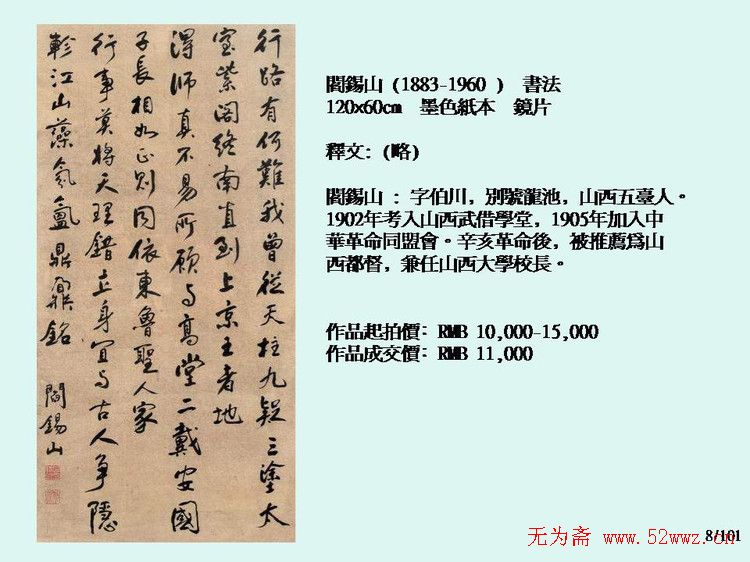 行路有何難我曾從天柱九疑三塗太
室紫閣終南直到上京王者地
得師真不易所願与高堂二戴安國
子長相如正則同依東魯聖人家
行事莫將天理錯立身宜与古人爭隱
軫江山藻氣氳鼎鼐銘
閻錫山
閻錫山 (1883-1960 ) 書法
120x60cm 墨色紙本 鏡片
釋文: (略)
閻錫山 : 字伯川, 別號龍池, 山西五臺人。
1902年考入山西武借學堂, 1905年加入中
華革命同盟會。辛亥革命後, 被推薦爲山
西都督, 兼任山西大學校長。
作品起拍價: RMB 10,000-15,000
作品成交價: RMB 11,000
无为斋 www.52wwz.cn
8/101